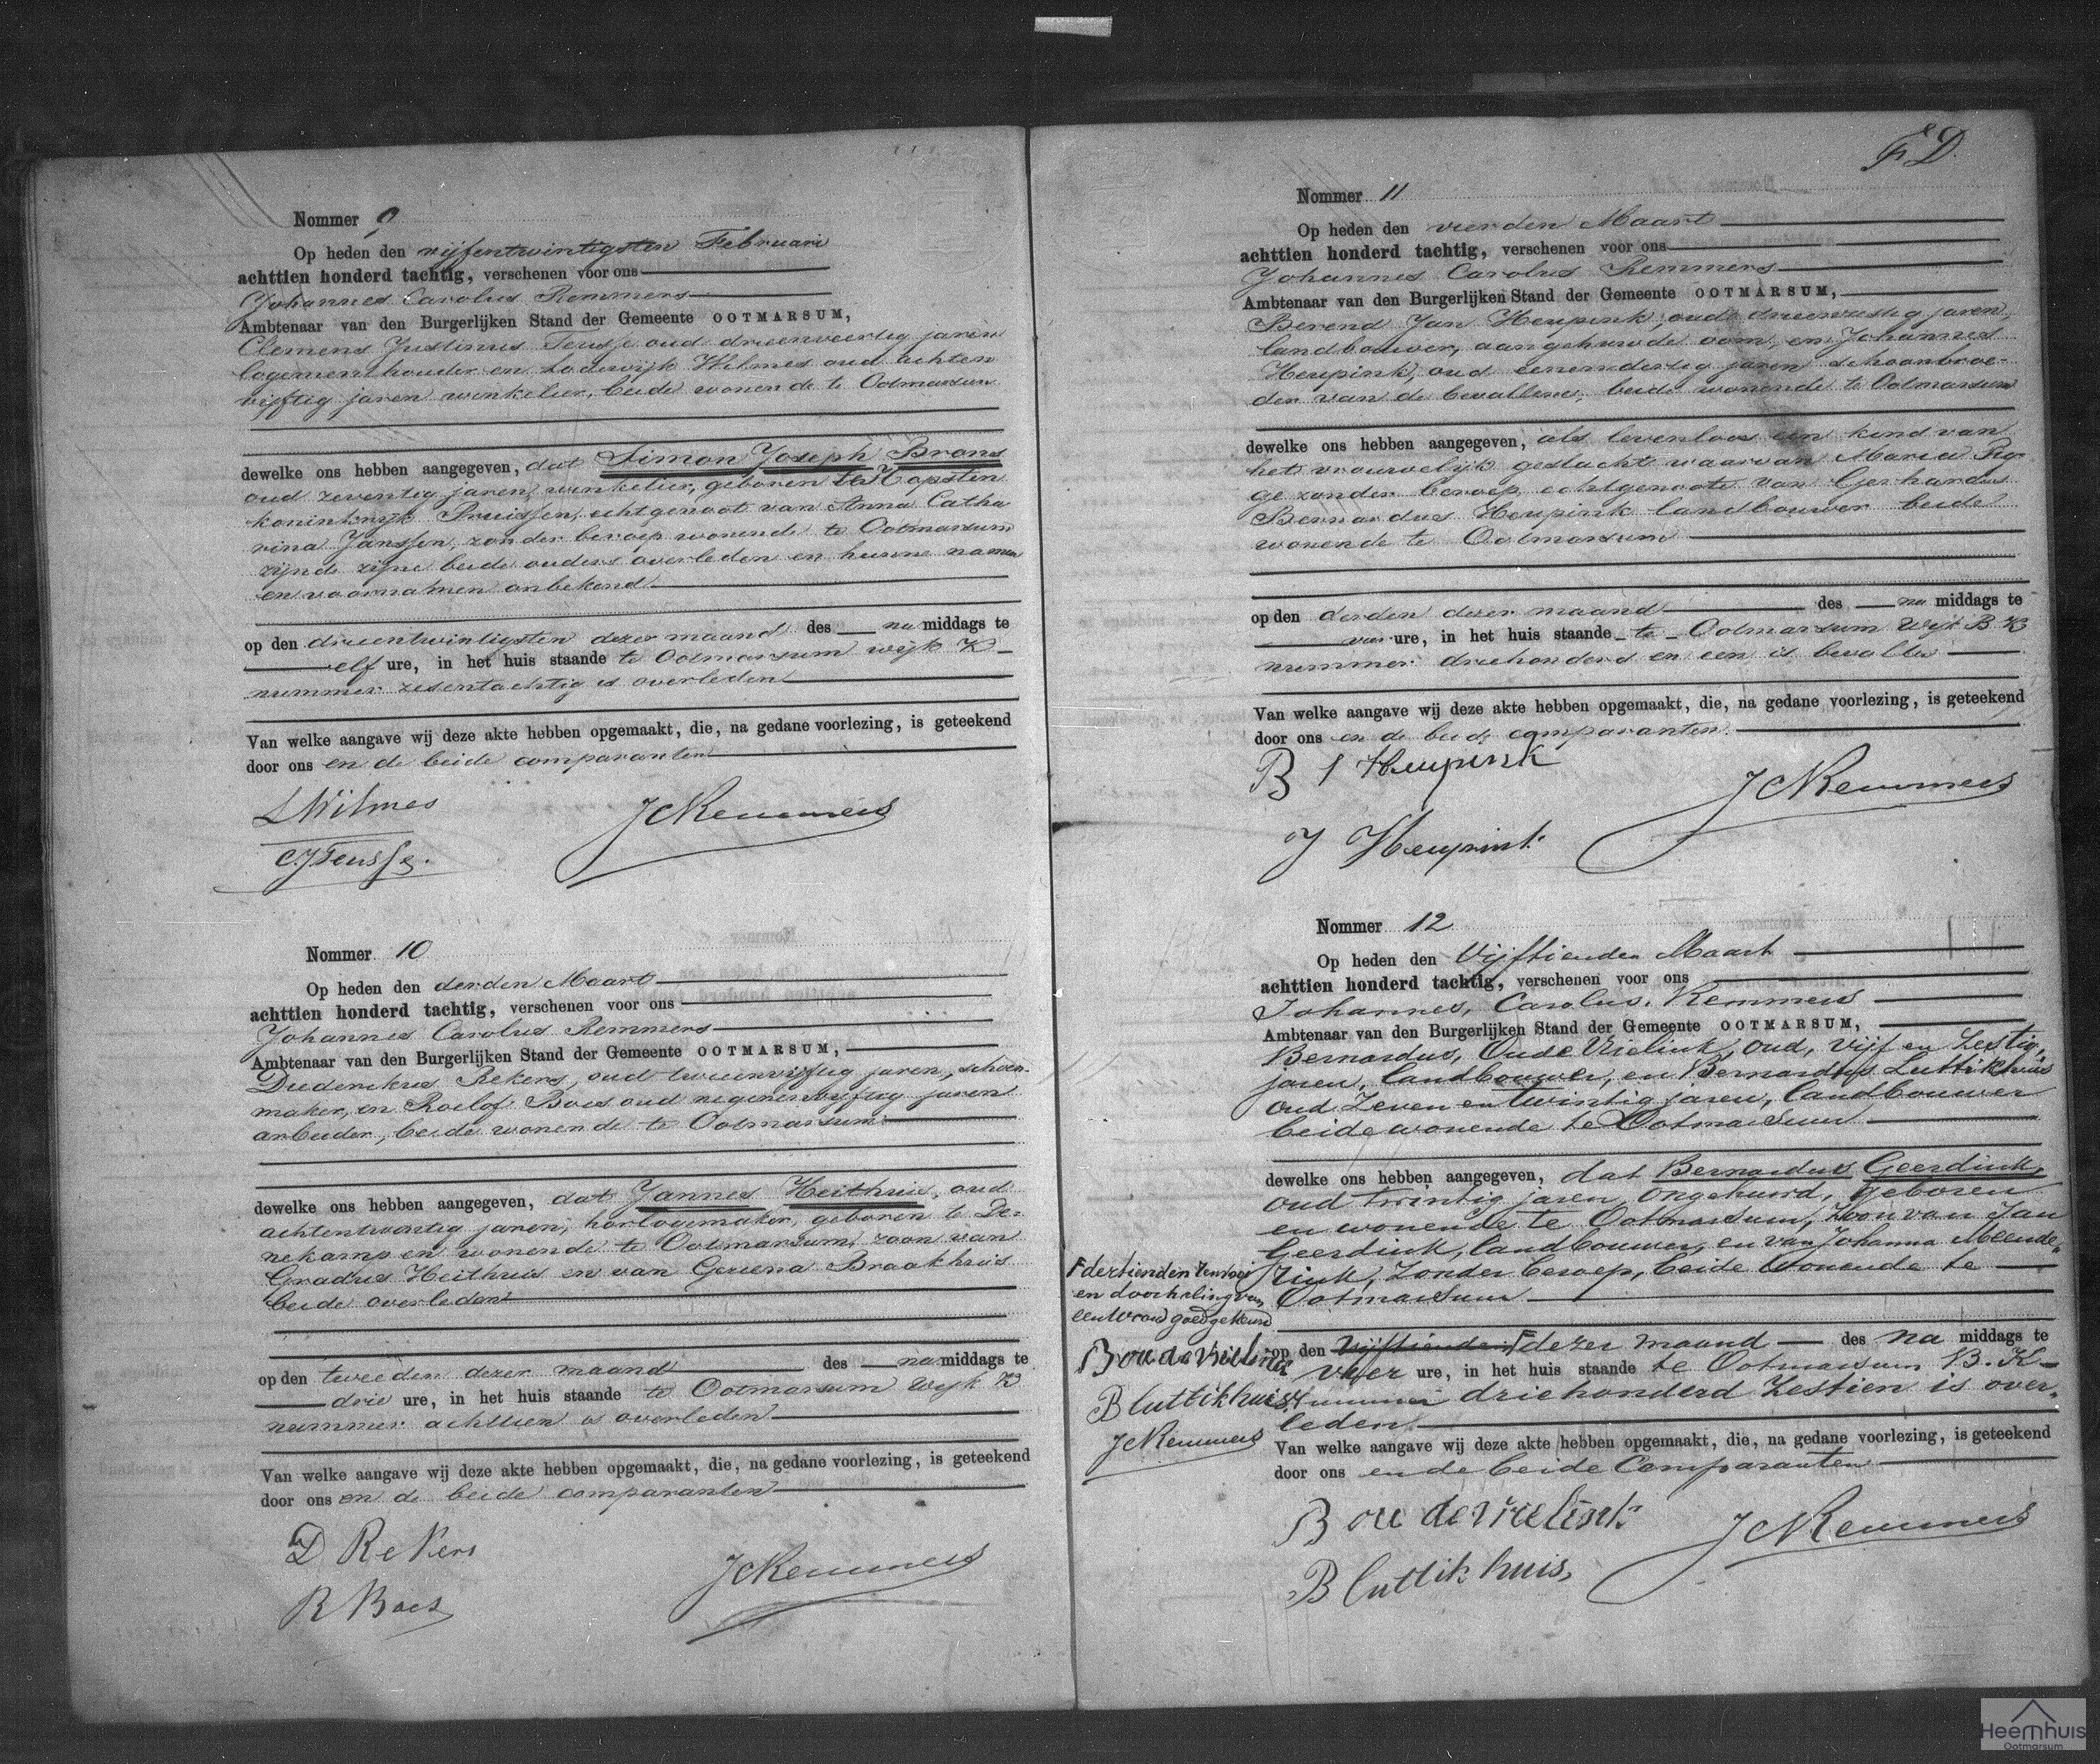 Nommer 9
Op heden den vijfentwintigsten Februari
achttien honderd tachtig, verschenen voor ons
Johannes Carolus Remmers
Ambtenaar van den Burgerlijken Stand der Gemeente OOTMARSUM,
Clemens Justinus Teusse oud drieenveertig jaren
logementhouder en Lodewijk Wilmes oud achten
vijftig jaren winkelier, beide wonende te Ootmarsum
dewelke ons hebben aangegeven, dat Simon Joseph Brons
oud zeventig jaren, winkelier, geboren te Hopsten
koninkrijk Pruissen, echtgenoot van Anna Catha
rina Janssen, zonder beroep wonende te Ootmarsum
zijnde zijne beide ouders overleden en hunne namen
en voornamen onbekend
op den drieentwintigsten dezer maand des na middags te
elf ure, in het huis staande te Ootmarsum wijk K
nummer zesentachtig is overleden
Van welke aangave wij deze akte hebben opgemaakt, die, na gedane voorlezing, is geteekend
door ons en de beide comparanten
L Wilmes
JCRemmers
C.J Teusse.
Nommer 10
Op heden den derden Maart
achttien honderd tachtig, verschenen voor ons
Johannes Carolus Remmers
Ambtenaar van den Burgerlijken Stand der Gemeente OOTMARSUM,
Diederikus Rekers, oud tweeenvijftig jaren, schoen-
maker, en Roelof Boes oud negenenvijftig jaren
arbeider, beide wonende te Ootmarsum
dewelke ons hebben aangegeven, dat Jannes Heithuis, oud
achtentwintig jaren, horlogemaker, geboren te De-
nekamp en wonende te Ootmarsum, zoon van
Gradus Heithuis en van Geziena Braakhuis
beide overleden
op den tweeden dezer maand des na middags te
drie ure, in het huis staande te Ootmarsum Wijk K
nummer achttien is overleden
Van welke aangave wij deze akte hebben opgemaakt, die, na gedane voorlezing, is geteekend
door ons en de beide comparanten
D Rekers
JCRemmers
R Boes
Nommer 11
Op heden den vierden Maart
achttien honderd tachtig, verschenen voor ons
Johannes Carolus Remmers
Ambtenaar van den Burgerlijken Stand der Gemeente OOTMARSUM,
Berend Jan Heupink, oud jaren,
landbouwer, aangehuwde oom, en Johannes
Heupink, oud eenendertig jaren schoonbroe-
der van de bevallene, beide wonende te Ootmarsum
dewelke ons hebben aangegeven, als levenloos een kind van
het vrouwelijk geslacht waarvan Maria
ge zonder beroep, echtgenoote van Gerhardus
Bernardus Heupink landbouwer beide
wonende te Ootmarsum
op den derden dezer maand des na middags te
vier ure, in het huis staande te Ootmarsum Wijk B K
nummer driehonderd en een is bevallen
Van welke aangave wij deze akte hebben opgemaakt, die, na gedane voorlezing, is geteekend
door ons en de beide comparanten.
B J Heupink
JCRemmers
J Heupink
Nommer 12
Op heden den Vijftienden Maart
achttien honderd tachtig, verschenen voor ons
Johannes, Carolus, Remmers
Ambtenaar van den Burgerlijken Stand der Gemeente OOTMARSUM,
Bernardus, Oude Vrielink, oud, vijf en Zestig,
jaren, landbouwer, en Bernardus Luttikhuis
oud Zeven en twintig jaren, landbouwer
beide wonende te Ootmarsum
dewelke ons hebben aangegeven, dat Bernardus Geerdink,
oud twintig jaren, ongehuwd, geboren
en wonende te Ootmarsum, Zoon van Jan
Geerdink, landbouwer, en van Johanna Meende-
rink, Zonder beroep, beide Wonende te
Ootmarsum
op den Vijftienden F dezer maand des na middags te
vier ure, in het huis staande te Ootmarsum B. K
Nummer driehonderd Zestien is over-
leden
Van welke aangave wij deze akte hebben opgemaakt, die, na gedane voorlezing, is geteekend
door ons en de beide Comparanten
B oude vrielink
JCRemmers
B luttikhuis,
F dertienden
en doorhaling van
een woord goedgekeurd
B oude vrielink
B luttikhuis
JCRemmers
Heemhuis
Ootmarsum